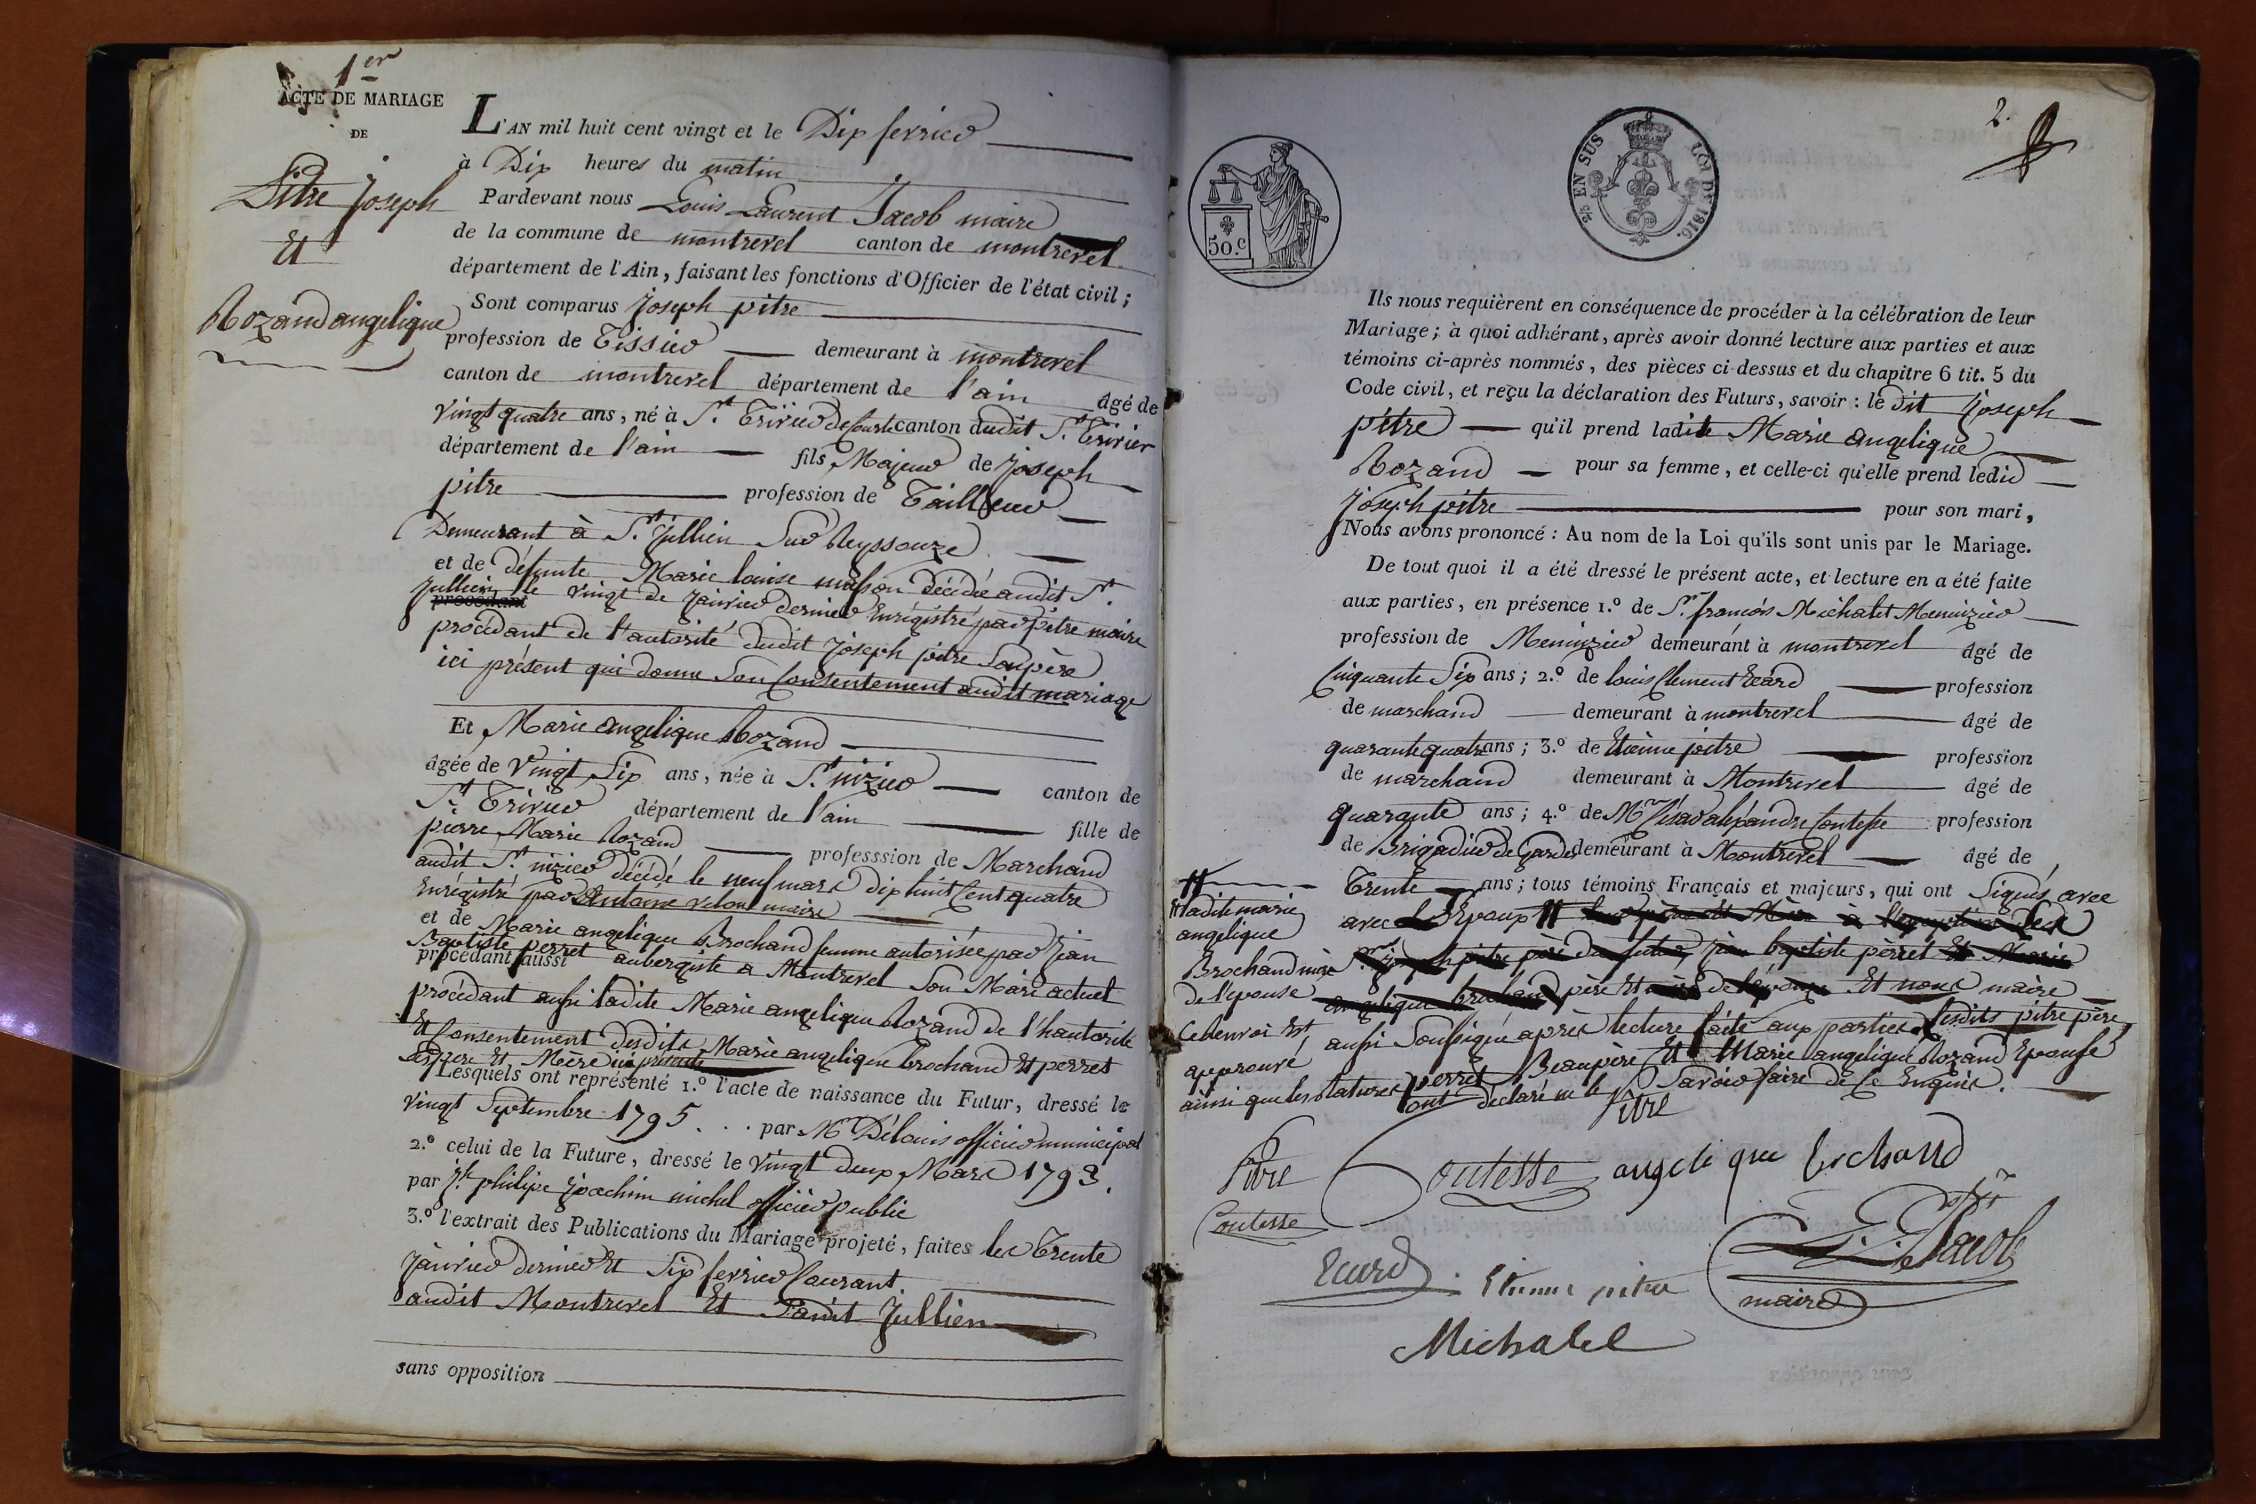 1er
ACTE DE MARIAGE
DE
Pitre Joseph
Et
Rozand angelique
L'AN mil huit cent vingt et le Dix fevrier
à Dix heures du matin
Pardevant nous Louis Laurent Jacob maire
de la commune de montrevel canton de montrevel
département de l'Ain, faisant les fonctions d'Officier de l'état civil;
Sont comparus Joseph pitre
profession de Tissier demeurant à montrevel
canton de montrevel département de l'ain âgé de
Vingt quatre ans, né à St. Trivier de Courte canton dudit St. Trivier
département de l'ain fils Majeur de Joseph
pitre profession de Tailleur
Demeurant à St. Jullien Sur Reyssouze
et de défunte Marie louise décédée audit St.
Jullien le vingt de Janvier dernier Enrégistré par pitre maire
procédant
procédant de l'autorité dudit Joseph pitre Son père
ici présent qui donne Son Consentement audit mariage
Et Marie angelique Rozand
âgée de Vingt Six ans, née à St. nizier canton de
St. Trivier département de l'ain fille de
pierre Marie Rozand professsion de Marchand
audit St. nizier décédé le neuf mars Dix huit Cent quatre
Enrégistré par Antoine maire
et de Marie angelique Brochand femme autorisée par Jean
Baptiste perret aubergiste a Montrevel Son Mari actuel
procédant aussi
procédant aussi ladite Marie angelique Rozand de l'hautorité
Et Consentement desdits Marie angelique Brochand Et perret
Ses pere Et Mère ici présents
Lesquels ont représenté 1.º l'acte de naissance du Futur, dressé le
vingt Septembre 1795 . . . par Mr Délouis officier municipal
2.º celui de la Future, dressé le vingt deux Mars 1793.
par Jh. philipe Joachim michel officier public
3.º l'extrait des Publications du Mariage projeté, faites les Trente
Janvier dernier Et Six fevrier Courant
audit Montrevel Et Saint Jullien
sans opposition
2.
50.c
EN SUS
LOI DE 1816.
Ils nous requièrent en conséquence de procéder à la célébration de leur
Mariage; à quoi adhérant, après avoir donné lecture aux parties et aux
témoins ci-après nommés, des pièces ci-dessus et du chapitre 6 tit. 5 du
Code civil, et reçu la déclaration des Futurs, savoir: le dit Joseph
pitre qu'il prend ladite Marie angelique
Rozand pour sa femme, et celle-ci qu'elle prend ledit
Joseph pitre pour son mari,
Nous avons prononcé: Au nom de la Loi qu'ils sont unis par le Mariage.
De tout quoi il a été dressé le présent acte, et lecture en a été faite
aux parties, en présence 1.º de Sr. françois Michalet Menuizier
profession de Menuizier demeurant à montrevel âgé de
Cinquante Six ans; 2.º de louis Clement Ecard profession
de marchand demeurant à montrevel âgé de
quarante quatre ans; 3.º de Etienne pitre profession
de marchand demeurant à Montrevel âgé de
quarante ans; 4.º de Mr Césard alexandre Contesse profession
de Brigadier de Gardes demeurant à Montrevel âgé de
Trente ans; tous témoins Français et majeurs, qui ont Signés avec
avec L'Epoux
père Et de l'épouze Et nous maire
aussi Soussigné après lecture faite aux parties lesdits pitre père
perret Beaupère Et Marie angelique Rozand Epouse
ont déclaré ne le Savoir faire de Ce Enquis.
ladite marie
angelique
Brochand mère
de l'epouse
Ce Renvoi Est
approuvé
ainsi que les Ratures
Pitre
Pitre
Contesse
Contesse angelique brchand
Ecard Etienne pitre
L. L. Jacob
maire
Michalel